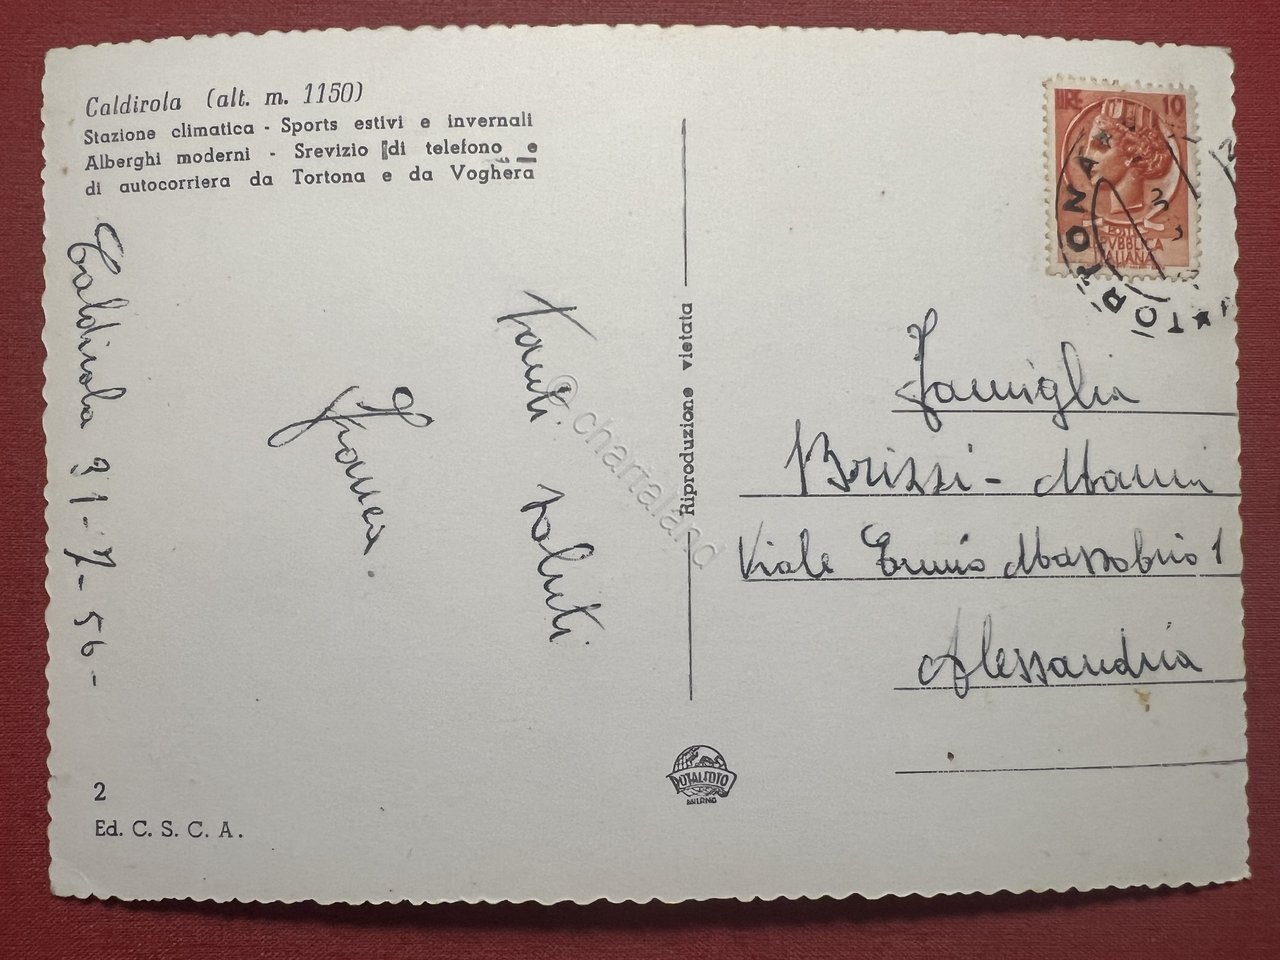 Caldirola (alt. m. 1150)
Stazione climatica - Sports estivi e invernali
Alberghi moderni - Srevizio di telefono e
di autocorriera da Tortona e da Voghera
Caldirola 31-7-56-
Tanti saluti
Franca
Riproduzione vietata
LIRE 10
POSTE
REPVBBLICA
ITALIANA
TORTONA
Famiglia
Brissi - Manni
Viale Ennio Massobrio 1
Alessandria
2
Ed. C. S. C. A.
ROTALFOTO
MILANO
© chartaland